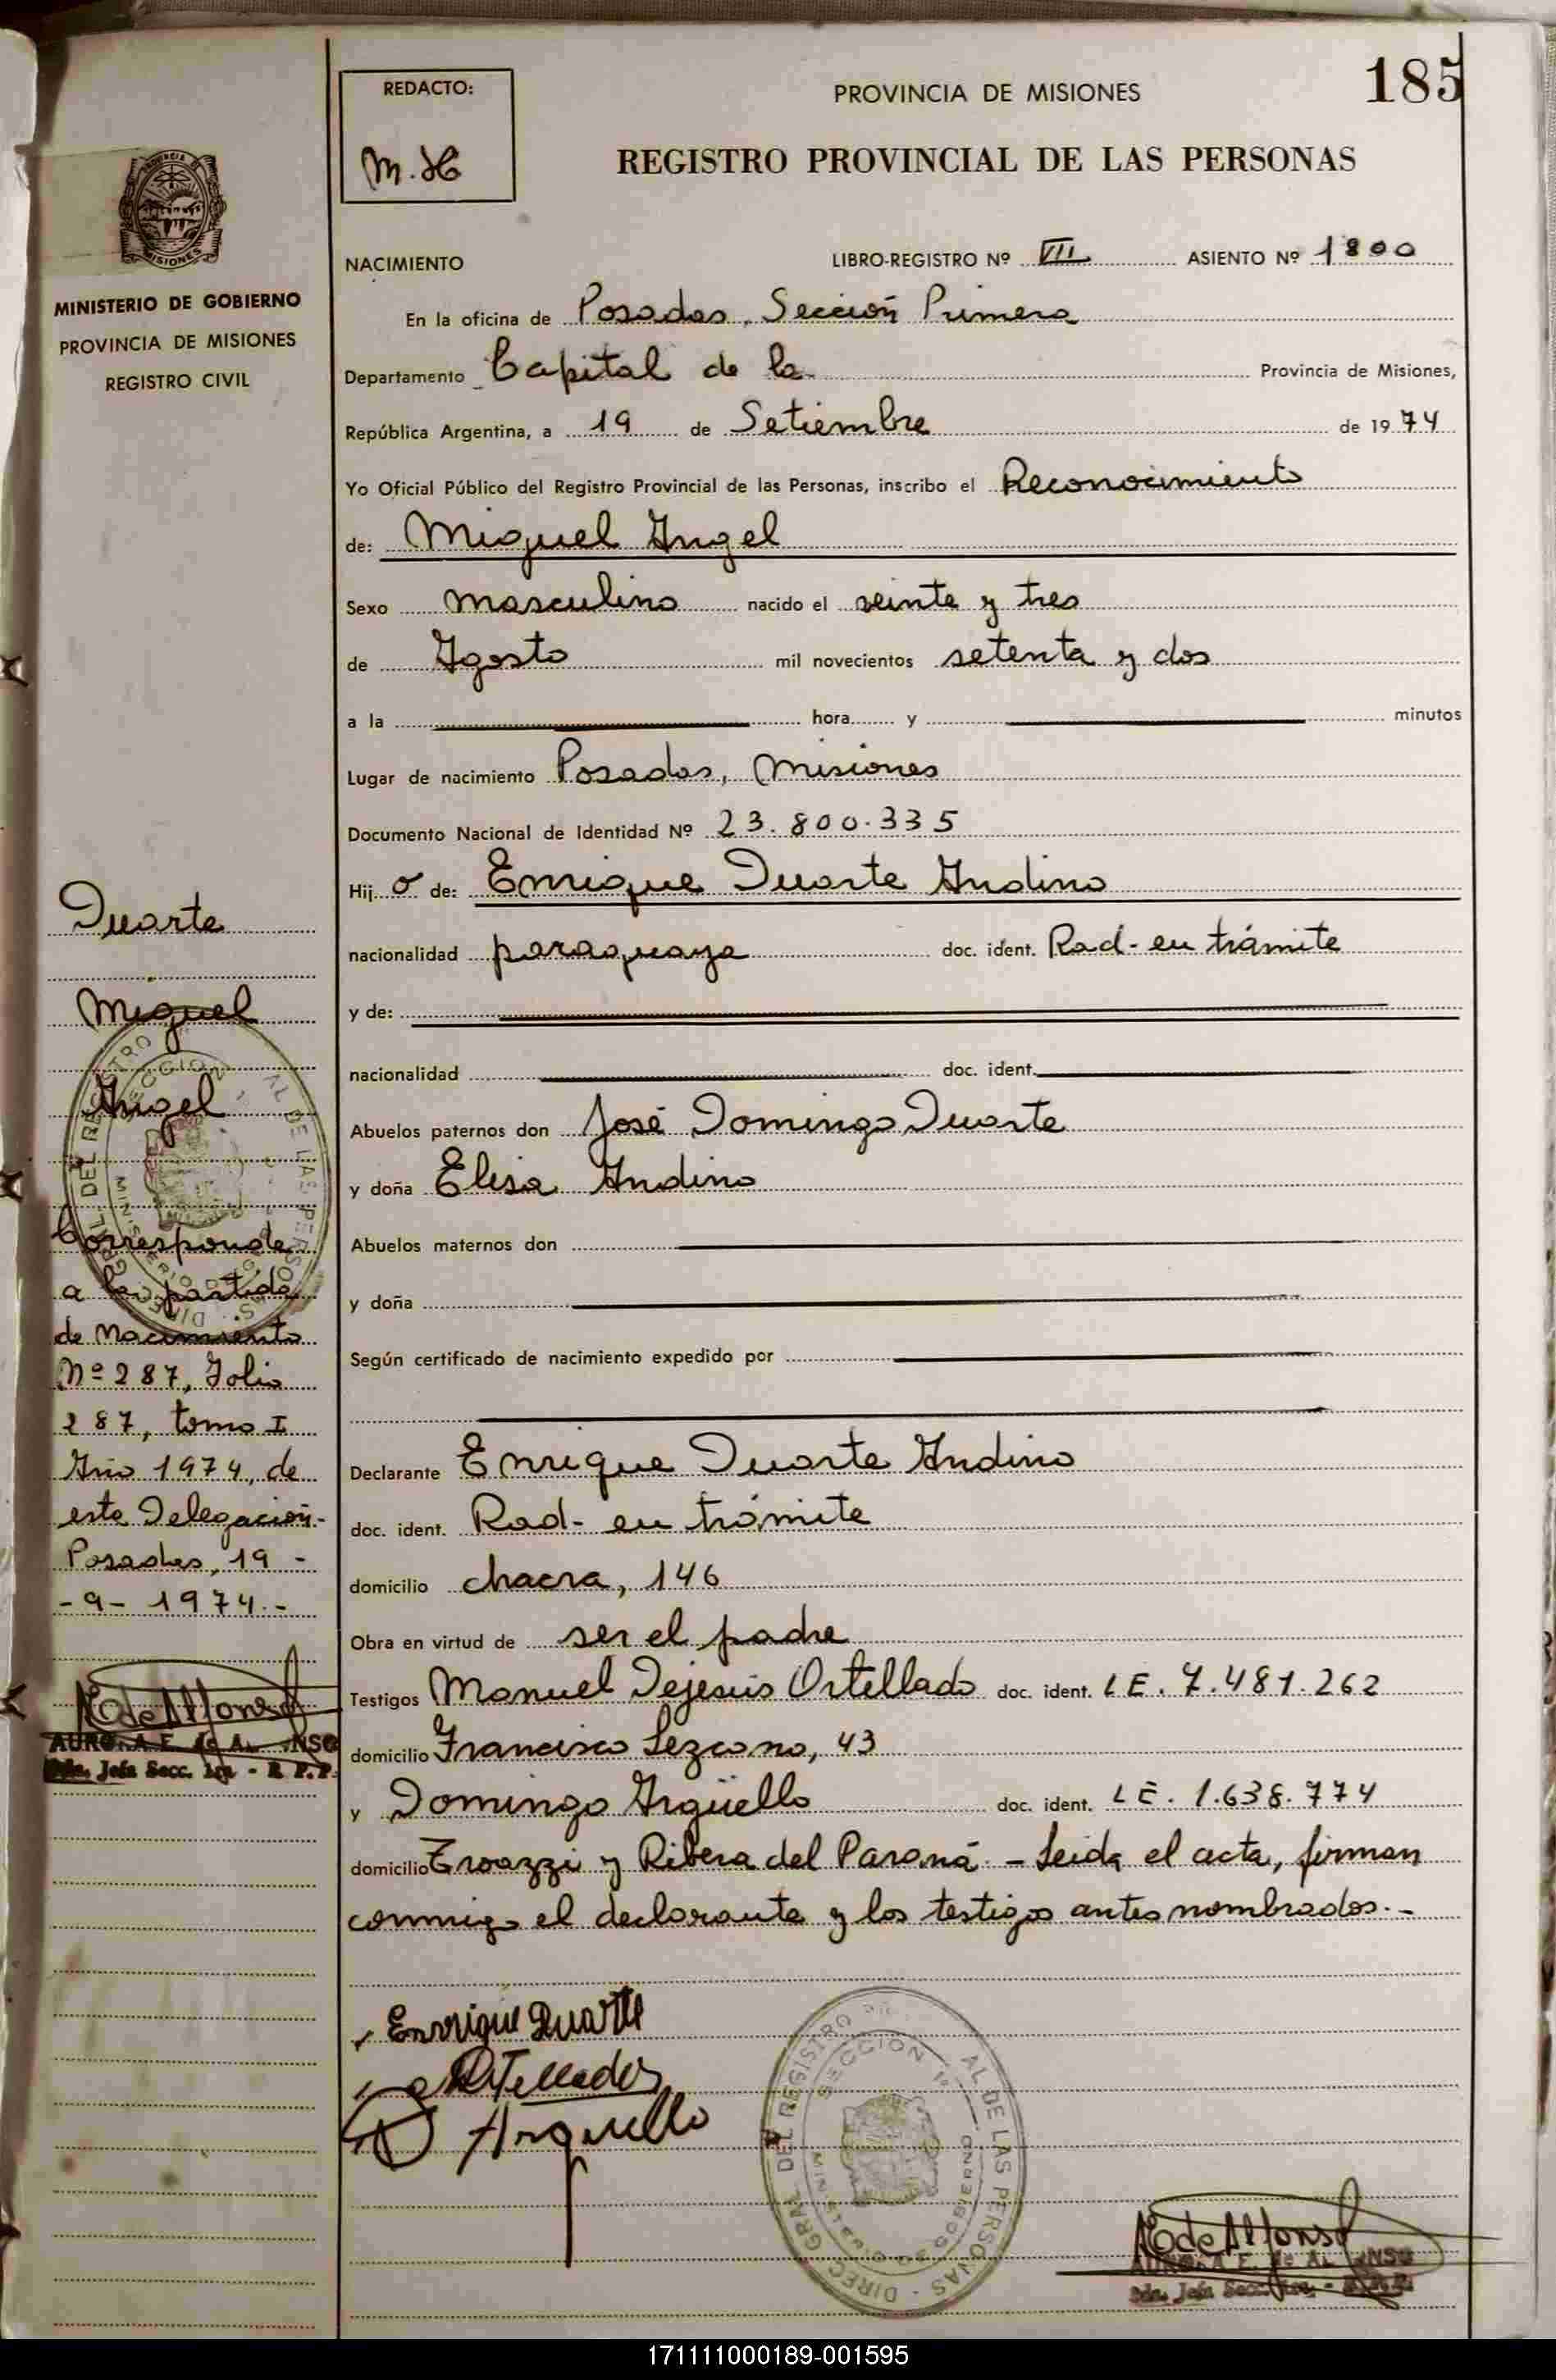 185
REDACTO:
M.H
PROVINCIA DE MISIONES
REGISTRO PROVINCIAL DE LAS PERSONAS
MISIONES
MINISTERIO DE GOBIERNO
PROVINCIA DE MISIONES
REGISTRO CIVIL
NACIMIENTO LIBRO-REGISTRO Nº VII ASIENTO Nº 1800
En la oficina de Posadas, Sección Primera
Departamento Capital de la Provincia de Misiones,
República Argentina, a 19 de Setiembre de 1974
Yo Oficial Público del Registro Provincial de las Personas, inscribo el Reconocimiento
de: Miguel Angel
Sexo masculino nacido el veinte y tres
de Agosto mil novecientos setenta y dos
a la hora y minutos
Lugar de nacimiento Posadas, Misiones
Documento Nacional de Identidad Nº 23.800.335
Hij o de: Enrique Duarte Andino
nacionalidad paraguaya doc. ident. Rad- en trámite
y de:
nacionalidad doc. ident.
Abuelos paternos don José Domingo Duarte
y doña Elisa Andino
Abuelos maternos don
y doña
Según certificado de nacimiento expedido por
Declarante Enrique Duarte Andino
doc. ident. Rad- en trámite
domicilio chacra, 146
Obra en virtud de ser el padre
Testigos Manuel Dejesús Ortellado doc. ident. LE. 7.481.262
domicilio Francisco Lezcano, 43
y Domingo Argüello doc. ident. LE. 1.638.774
domicilio y Ribera del Paraná - Leida el acta, firman
conmigo el declarante y los testigos antes nombrados.-
Duarte
Miguel
Angel
Corresponde
a la partida
de Nacimiento
Nº 287, Folio
287, tomo I
Año 1974, de
esta Delegación-
Posadas, 19 -
- 9 - 1974.-
E de Alfonso
AURORA E. de ALFONSO
Jefa Secc. 1ra - R.P.P.
Enrrique Duarte
Ortellado
Arguello
DIREC. GRAL. DEL REGISTRO PROVINCIAL DE LAS PERSONAS
SECCION 1ª
E de Alfonso
AURORA E. de ALFONSO
Jefa Secc. 1ra - R.P.P.
171111000189-001595